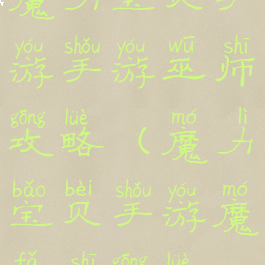 魔
yóu shǒu yóu wū shī
游手游巫师
gōng lüè mó lì
攻略（魔力
bǎo bèi shǒu yóu mó
宝贝手游魔
fǎ shī gōng lüè